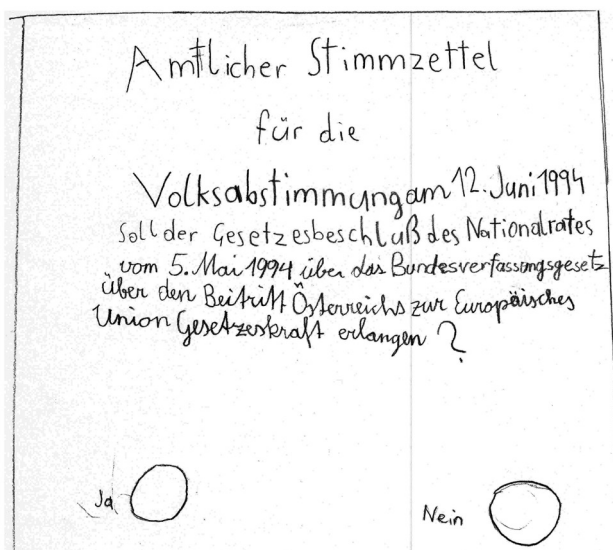 Amtlicher Stimmzettel
für die
Volksabstimmung am 12. Juni 1994
Soll der Gesetzesbeschluß des Nationalrates
vom 5. Mai 1994 über das Bundesverfassungsgesetz
über den Beitritt Österreichs zur Europäisches
Union Gesetzeskraft erlangen?
Ja
Nein